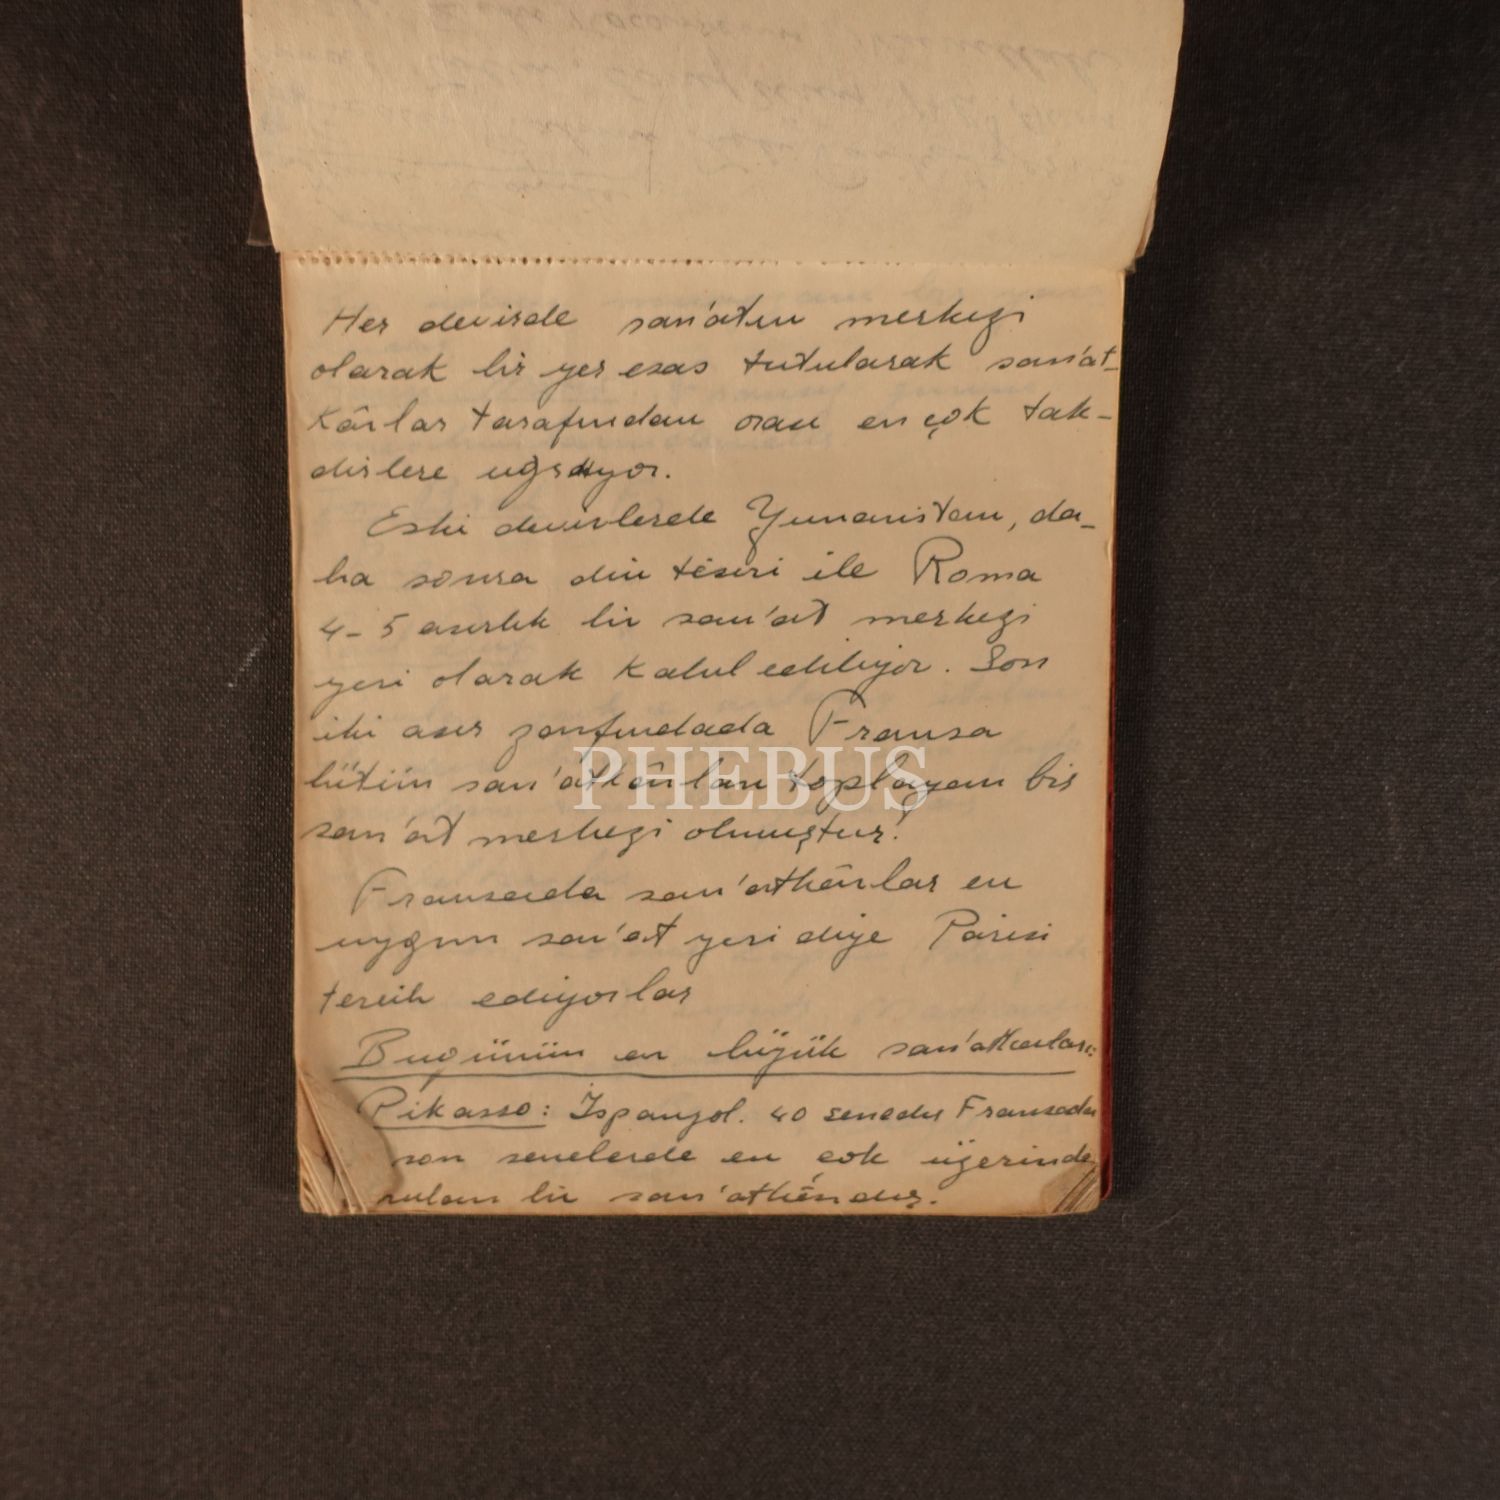 Her devirde san'atın merkezi
olarak bir yer esas tutularak san'at-
kârlar tarafından orası en çok tak-
dirlere uğruyor.
Eski devirlerde Yunanistan, da-
ha sonra din tésiri ile Roma
4-5 asırlık bir san'at merkezi
yeri olarak kabul ediliyor. Son
iki asır zarfındada Fransa
bütün san'atkârları toplayan bir
san'at merkezi olmuştur.
Fransada san'atkârlar en
uygun san'at yeri diye Parisi
tercih ediyorlar
Bugünün en büyük san'atkarları:
Pikasso: İspanyol. 40 senedir Fransada
son senelerde en çok üzerinde
rulan bir san'atkârdır.
PHEBUS